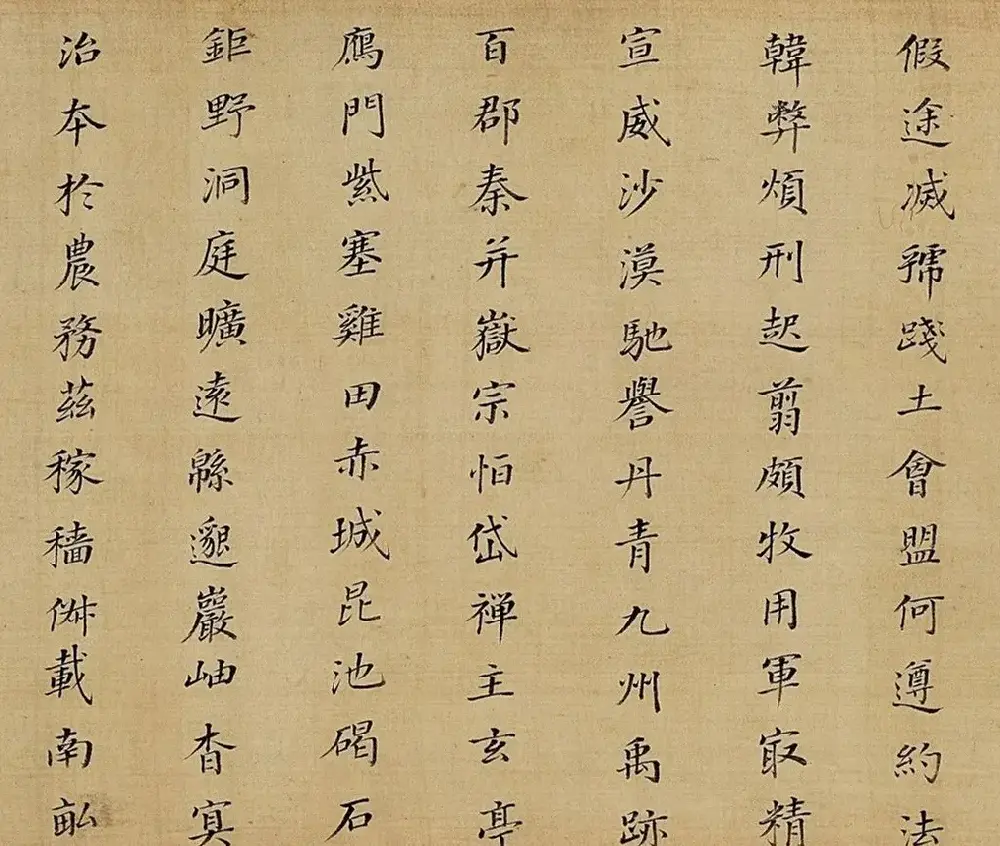 假途滅虢踐土會盟何遵約法
韓弊煩刑起翦頗牧用軍冣精
宣威沙漠馳譽丹青九州禹跡
百郡秦并嶽宗怕岱禅主玄亭
鴈門紫塞雞田赤城昆池碣石
鉅野洞庭曠遠緜邈巖岫杳冥
治本於農務茲稼穡俶載南畝